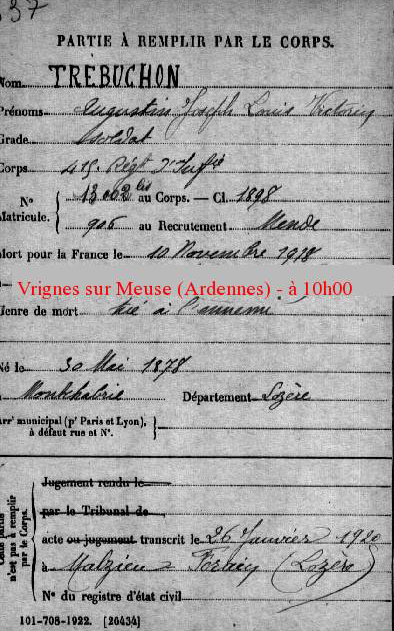 37
PARTIE À REMPLIR PAR LE CORPS.
Nom TRÉBUCHON
Prénoms Augustin Joseph Louis Victorin
Grade Soldat
Corps 415 Régt d'Infie
N° Matricule. { 13 002 bis au Corps. — Cl. 1898
906 au Recrutement Mende
Mort pour la France le 10 Novembre 1918
à
Vrignes sur Meuse (Ardennes) - à 10h00
Genre de mort tué à l'ennemi
Né le 30 Mai 1878
à Montchabrie Département Lozère
Arr^t municipal (p^r Paris et Lyon), à défaut rue et N°. }
Jugement rendu le
par le Tribunal de
acte ou jugement transcrit le 26 Janvier 1920
à Malzieu Forain (Lozère)
N° du registre d'état civil
n'est pas à remplir par le Corps.
101-708-1922. [26434]